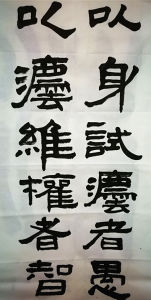 以身試灋者愚
以灋維權者智